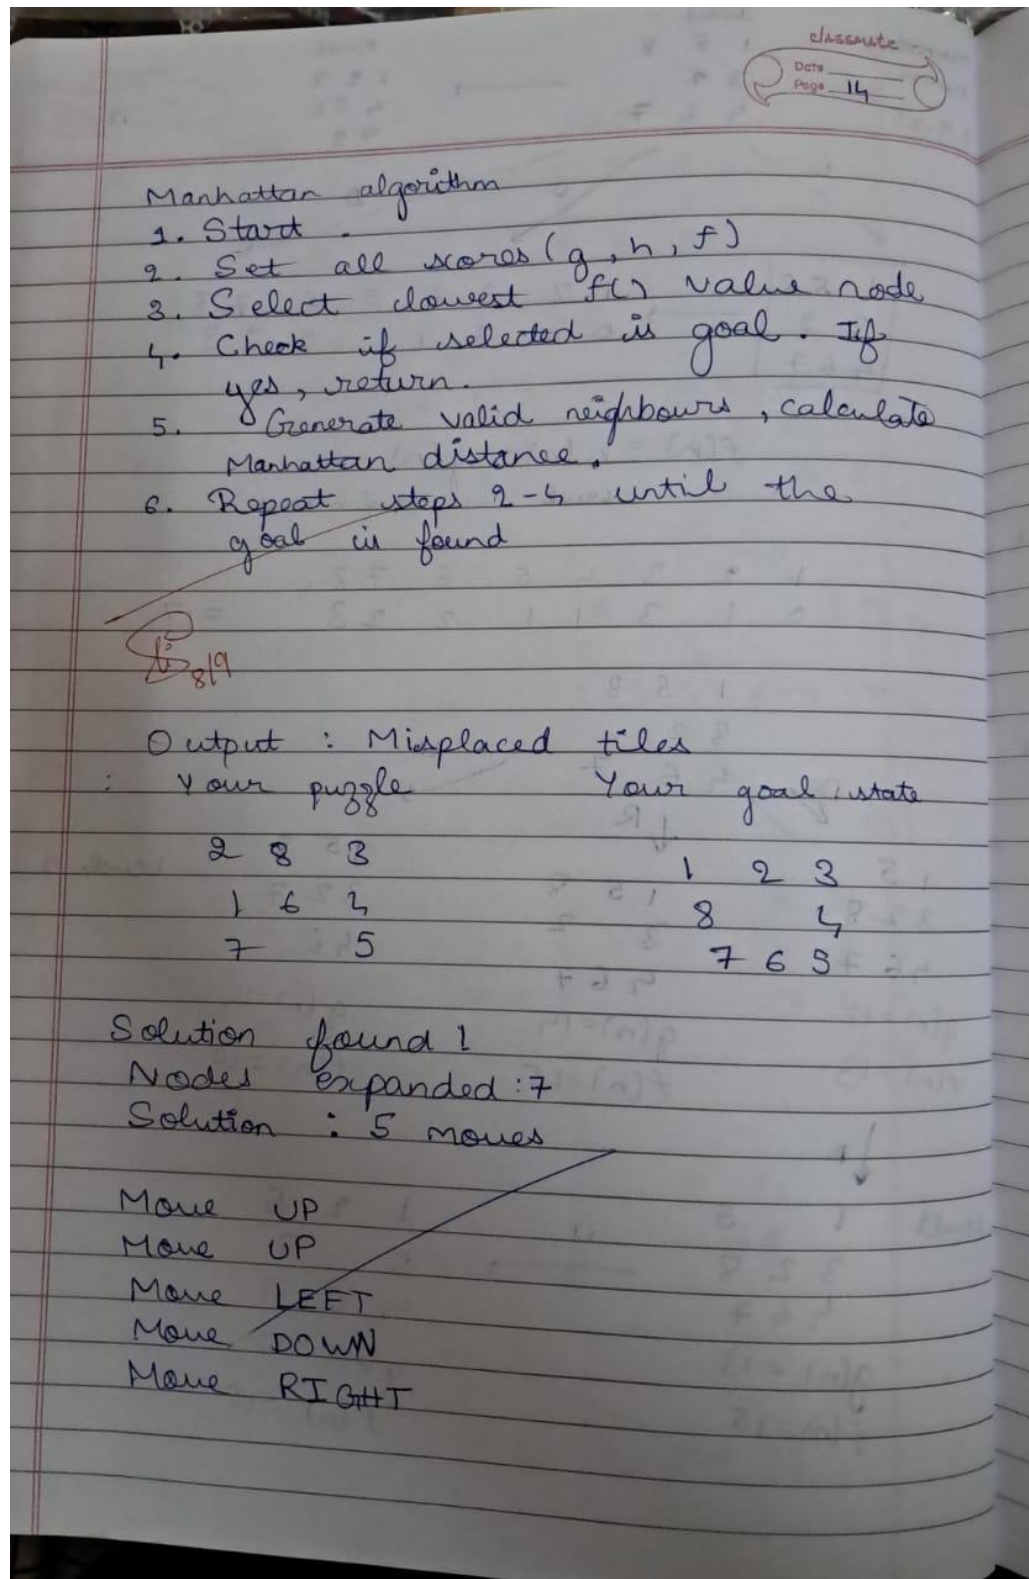 classmate
Date
Page 14
Manhattan algorithm
1. Start.
2. Set all scores (g, h, f)
3. Select lowest f() value node
4. Check if selected is goal. If
yes, return.
5. Generate valid neighbours, calculate
Manhattan distance.
6. Repeat steps 2-4 until the
goal is found
8/9
Output : Misplaced tiles
: Your puzzle Your goal state
2 8 3 1 2 3
1 6 4 8 4
7 5 7 6 5
Solution found!
Nodes expanded: 7
Solution : 5 moves
Move UP
Move UP
Move LEFT
Move DOWN
Move RIGHT